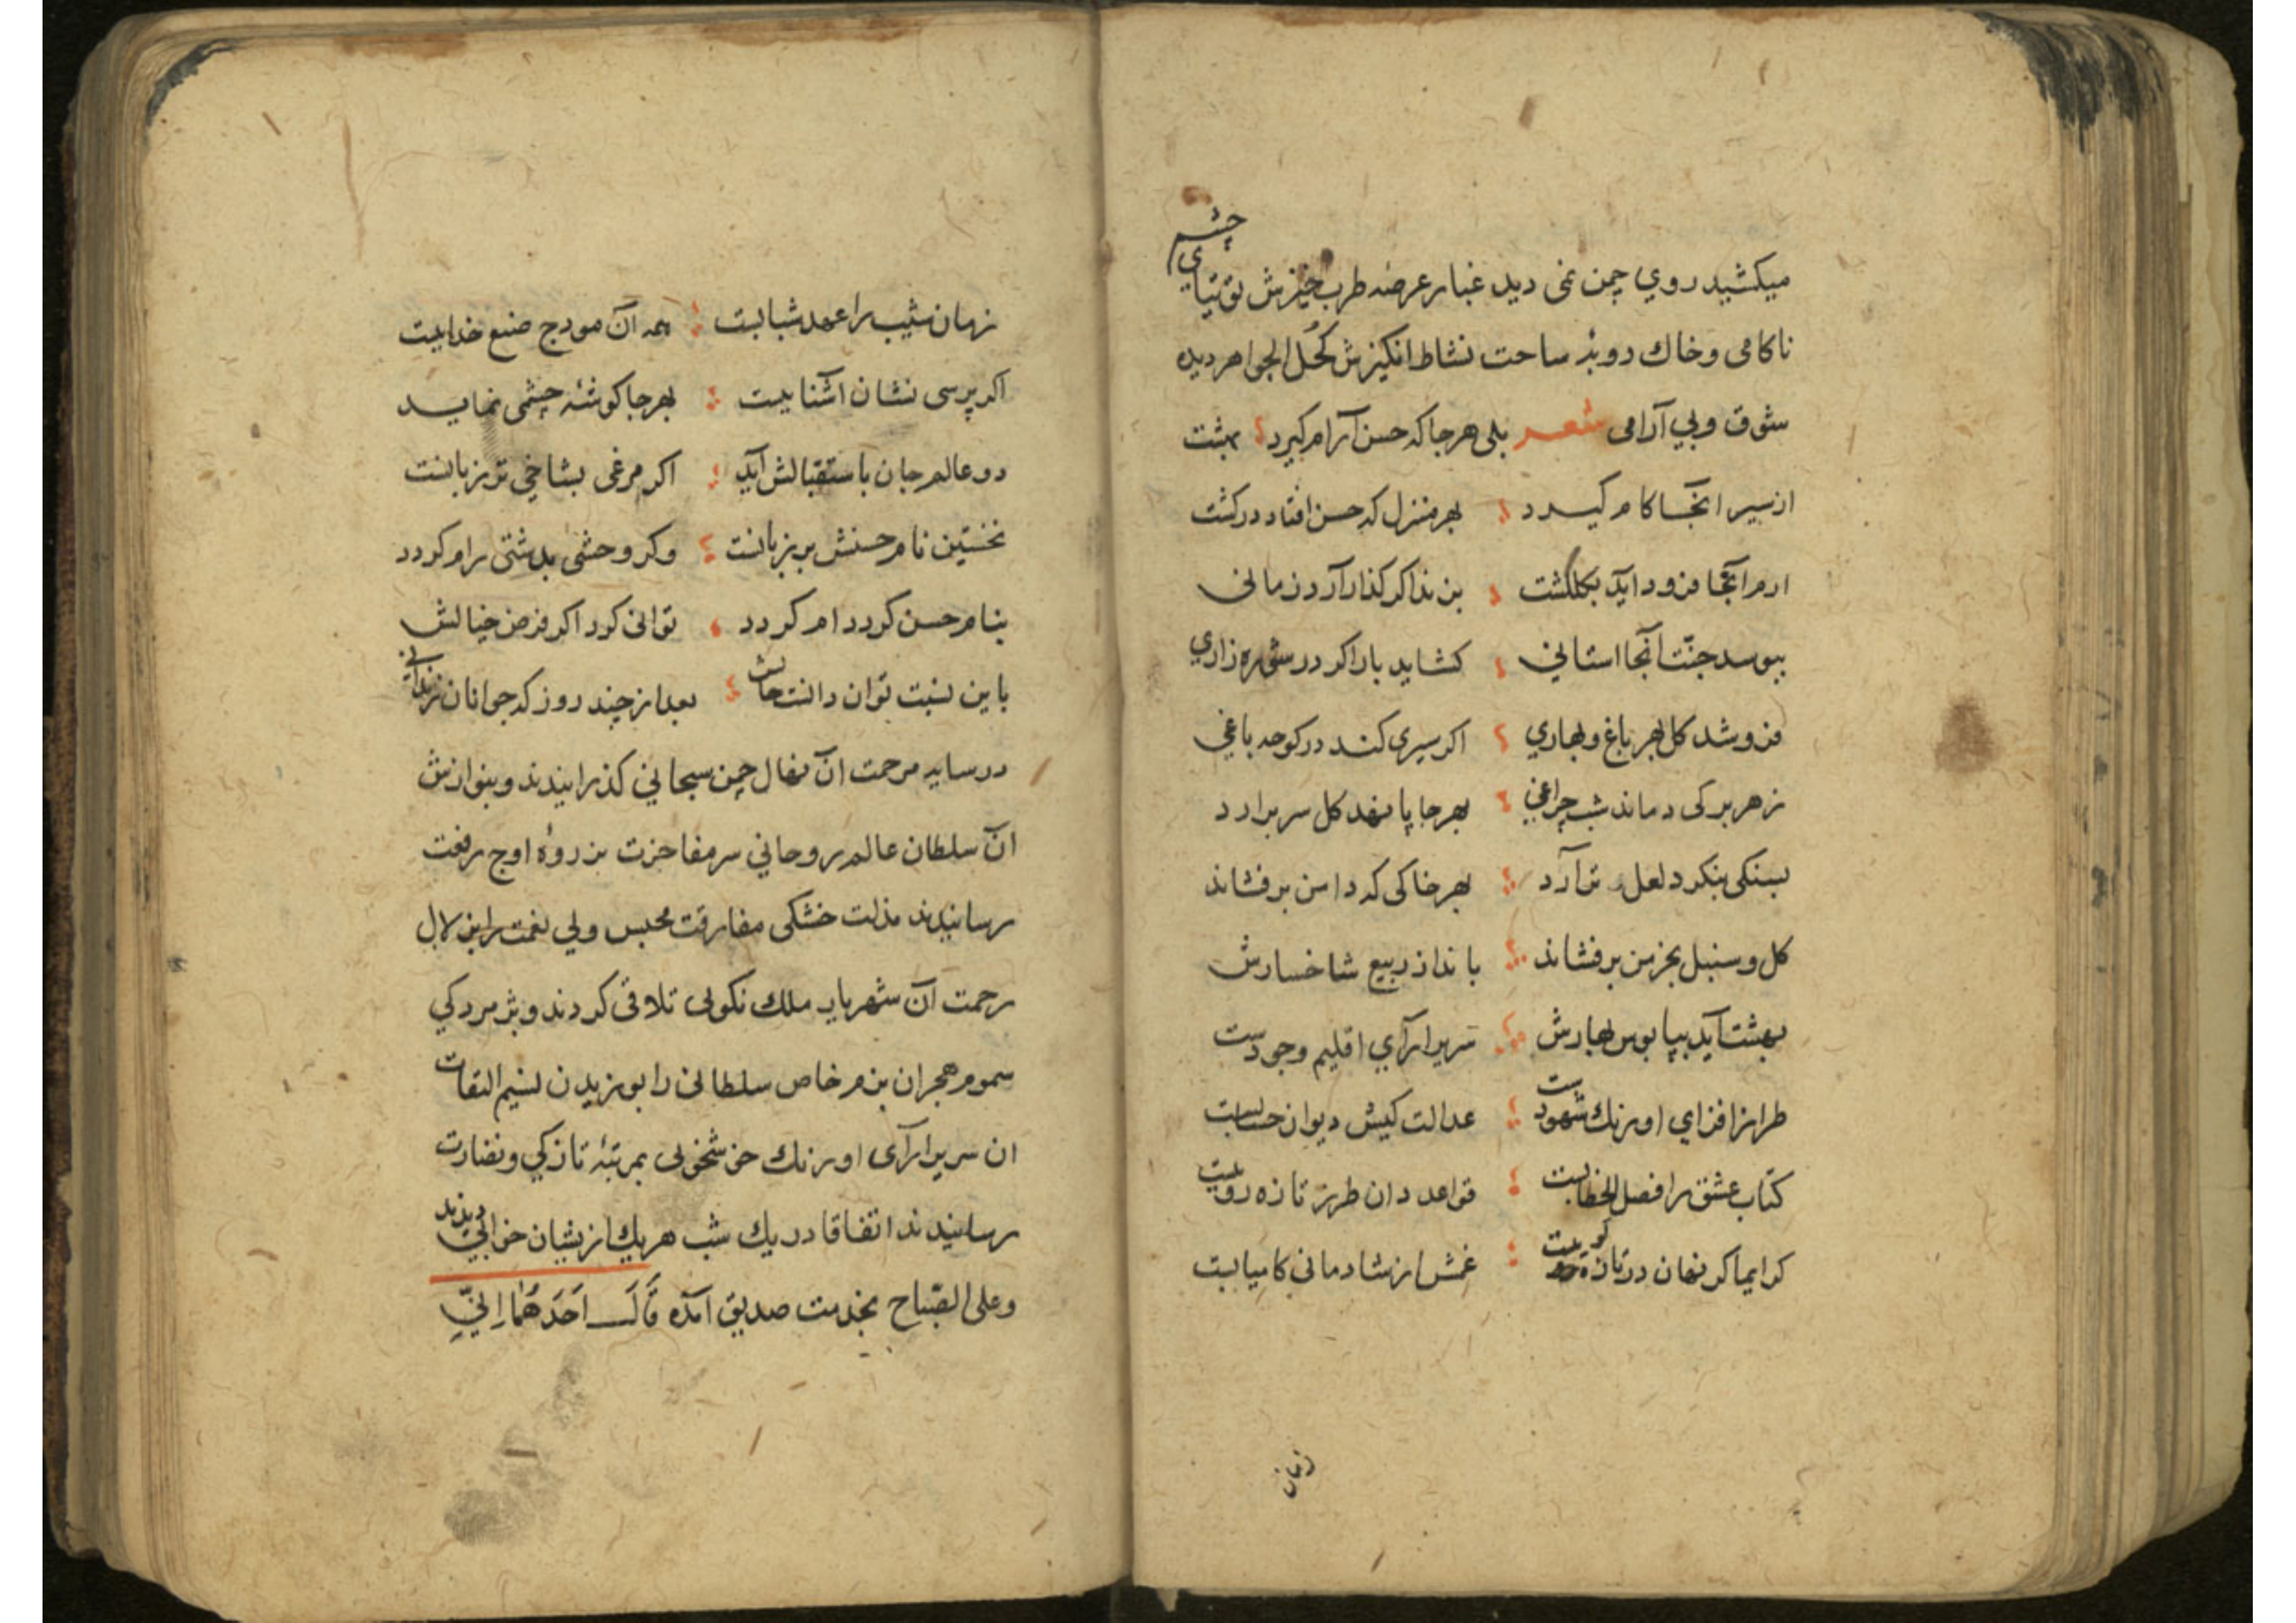 میکشید روي چمن نمی دید غبار عرضه طرب خیزش توتیاي چشم
ناکامی و خاك دوبۀ ساحت نشاط انکیزش کحل الجواهر دیده
شوق و بي آرامی شعر بلی هرجا که حسن آرام کیرد بهشت
از سیر انجا کام کیرد بهر منزل که حسن افتاد در کشت
ارم آنجا فرود آید بکلکشت بن نداکر کذار آرد زمانی
ببوسد جنّت آنجا استانی کشاید بار اکر در شوره زاري
فروشد کل بهر باغ و بهاري اکر سیری کند در کوچه باغي
ز هر برکی دماند شب چراغي بهر جا پا نهد کل سر برارد
بسنکی بنکرد لعل تر آرد بهر خاکی که دامن بر فشاند
کل و سنبل بخرمن بر فشاند باندازد بیع شاخسارش
بهشت آید بپا بوس بهارش سریر ارآي اقلیم وجودست
طراز افزاي اورنك شهودست عدالت کیش دیوان حسابست
کتاب عشق را فصل الخطابست قواعد دان طرز تازه رویست
کرایما کر نهان در تازه کویست غمش از شادمانی کامیابست
زمان
زمان شیب را عهد شبابست همه آن مودج صنع خدایست
اکر پرسی نشان اشنایست بهر جا کوشۀ چشمی نماید
دو عالم جان باستقبالش آید اکر مرغی بشاخی تر زبانست
نخستین نام حسنش بر زبانست وکر وحشی بدشتی رام کردد
بنام حسن کردد ام کردد توانی کرد اکر فرض خیالش
باین نسبت توان دانست حالش بعد از چند روز که جوانان زندانی
در سایه مرحمت ان نهال چمن سبحاني کذرانیدند و بنوازش
ان سلطان عالم روحاني سر مفاخرت بذروۀ اوج رفعت
رسانیدند مذلت خشکی مفارقت مجلس ولي نعمت را بزلال
رحمت ان شهریار ملك نکوئی تلافی کردند و پژمردکي
سموم هجران بزم خاص سلطانی را بوزیدن نسیم التفات
ان سریر ارآی اورنك خوشخوئی بمرتبۀ تازکي و نضارت
رسانیدند اتفاقا در یك شب هر یك از یشان خوابي دیدند
و على الصّباح بخدمت صدیق آمده قَالَ اَحَدَهُمَا اِنِّي